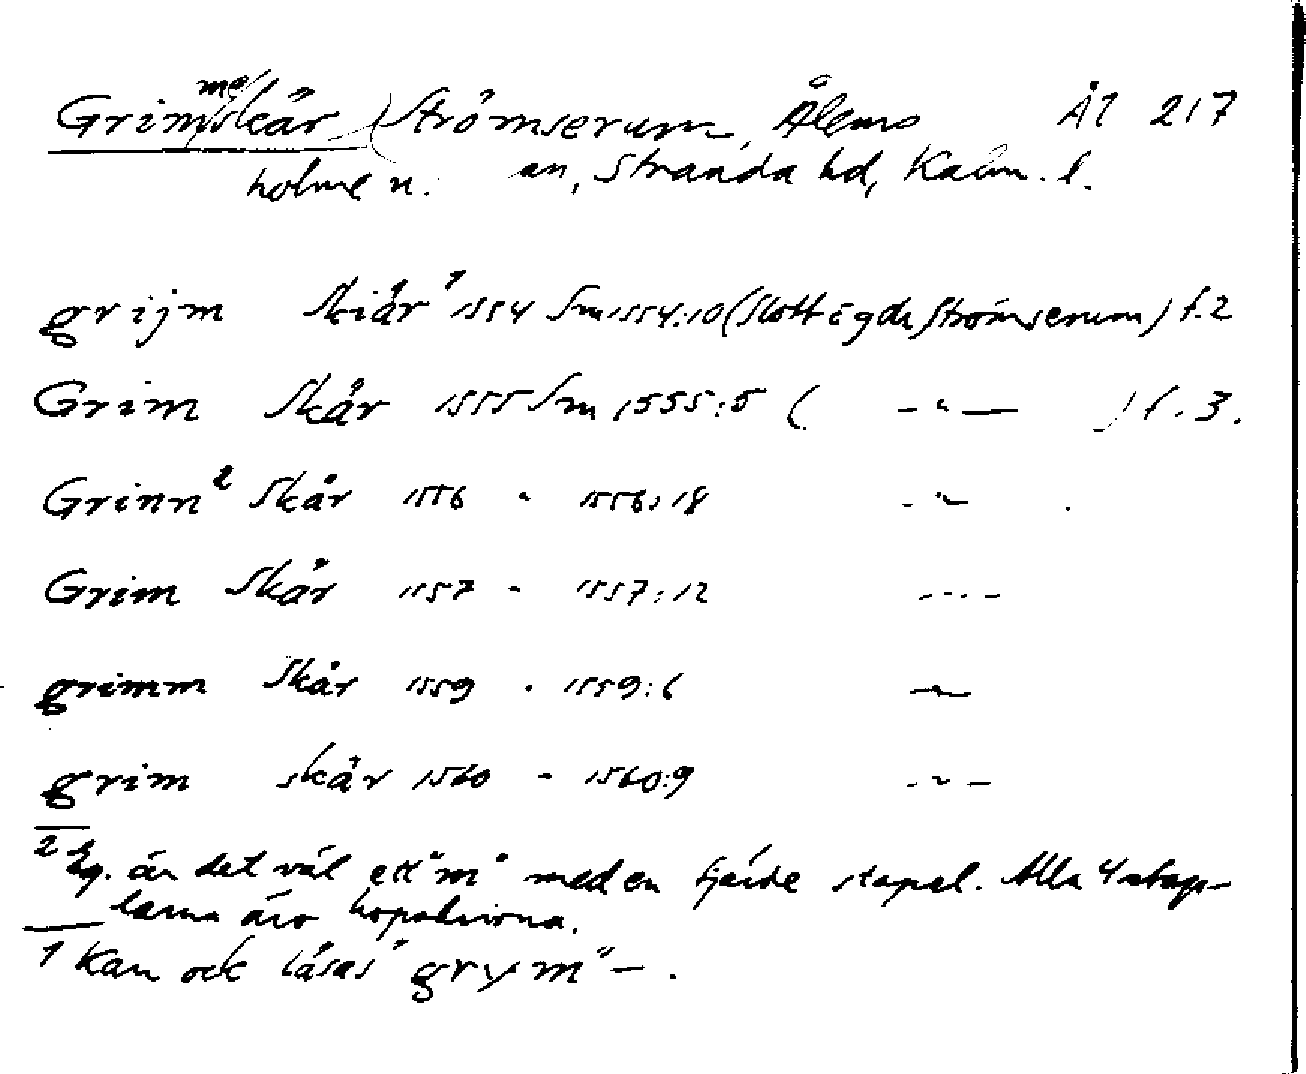 Grimskär Strömserum, Ålems Ål 217
me
holmen. an, Stranda hd, Kalm. l.
grijm Skiär 1 1554 Sm 1554:10 (Slott o gda Strömserum) f. 2
Grim Skår 1555 Sm 1555:5 ( -"- ) f. 3.
Grinn 2 Skår 1556 " 1556:18 -"- .
Grim Skår 1557 - 1557:12 -"-
grimm Skår 1559 . 1559:6 -"-
grim skär 1560 - 1560:9 -"-
2 Eg. är det väl ett "m" med en fjärde stapel. Alla 4 stap-
larna äro hopskrivna.
1 Kan ock läsas "grym" - .